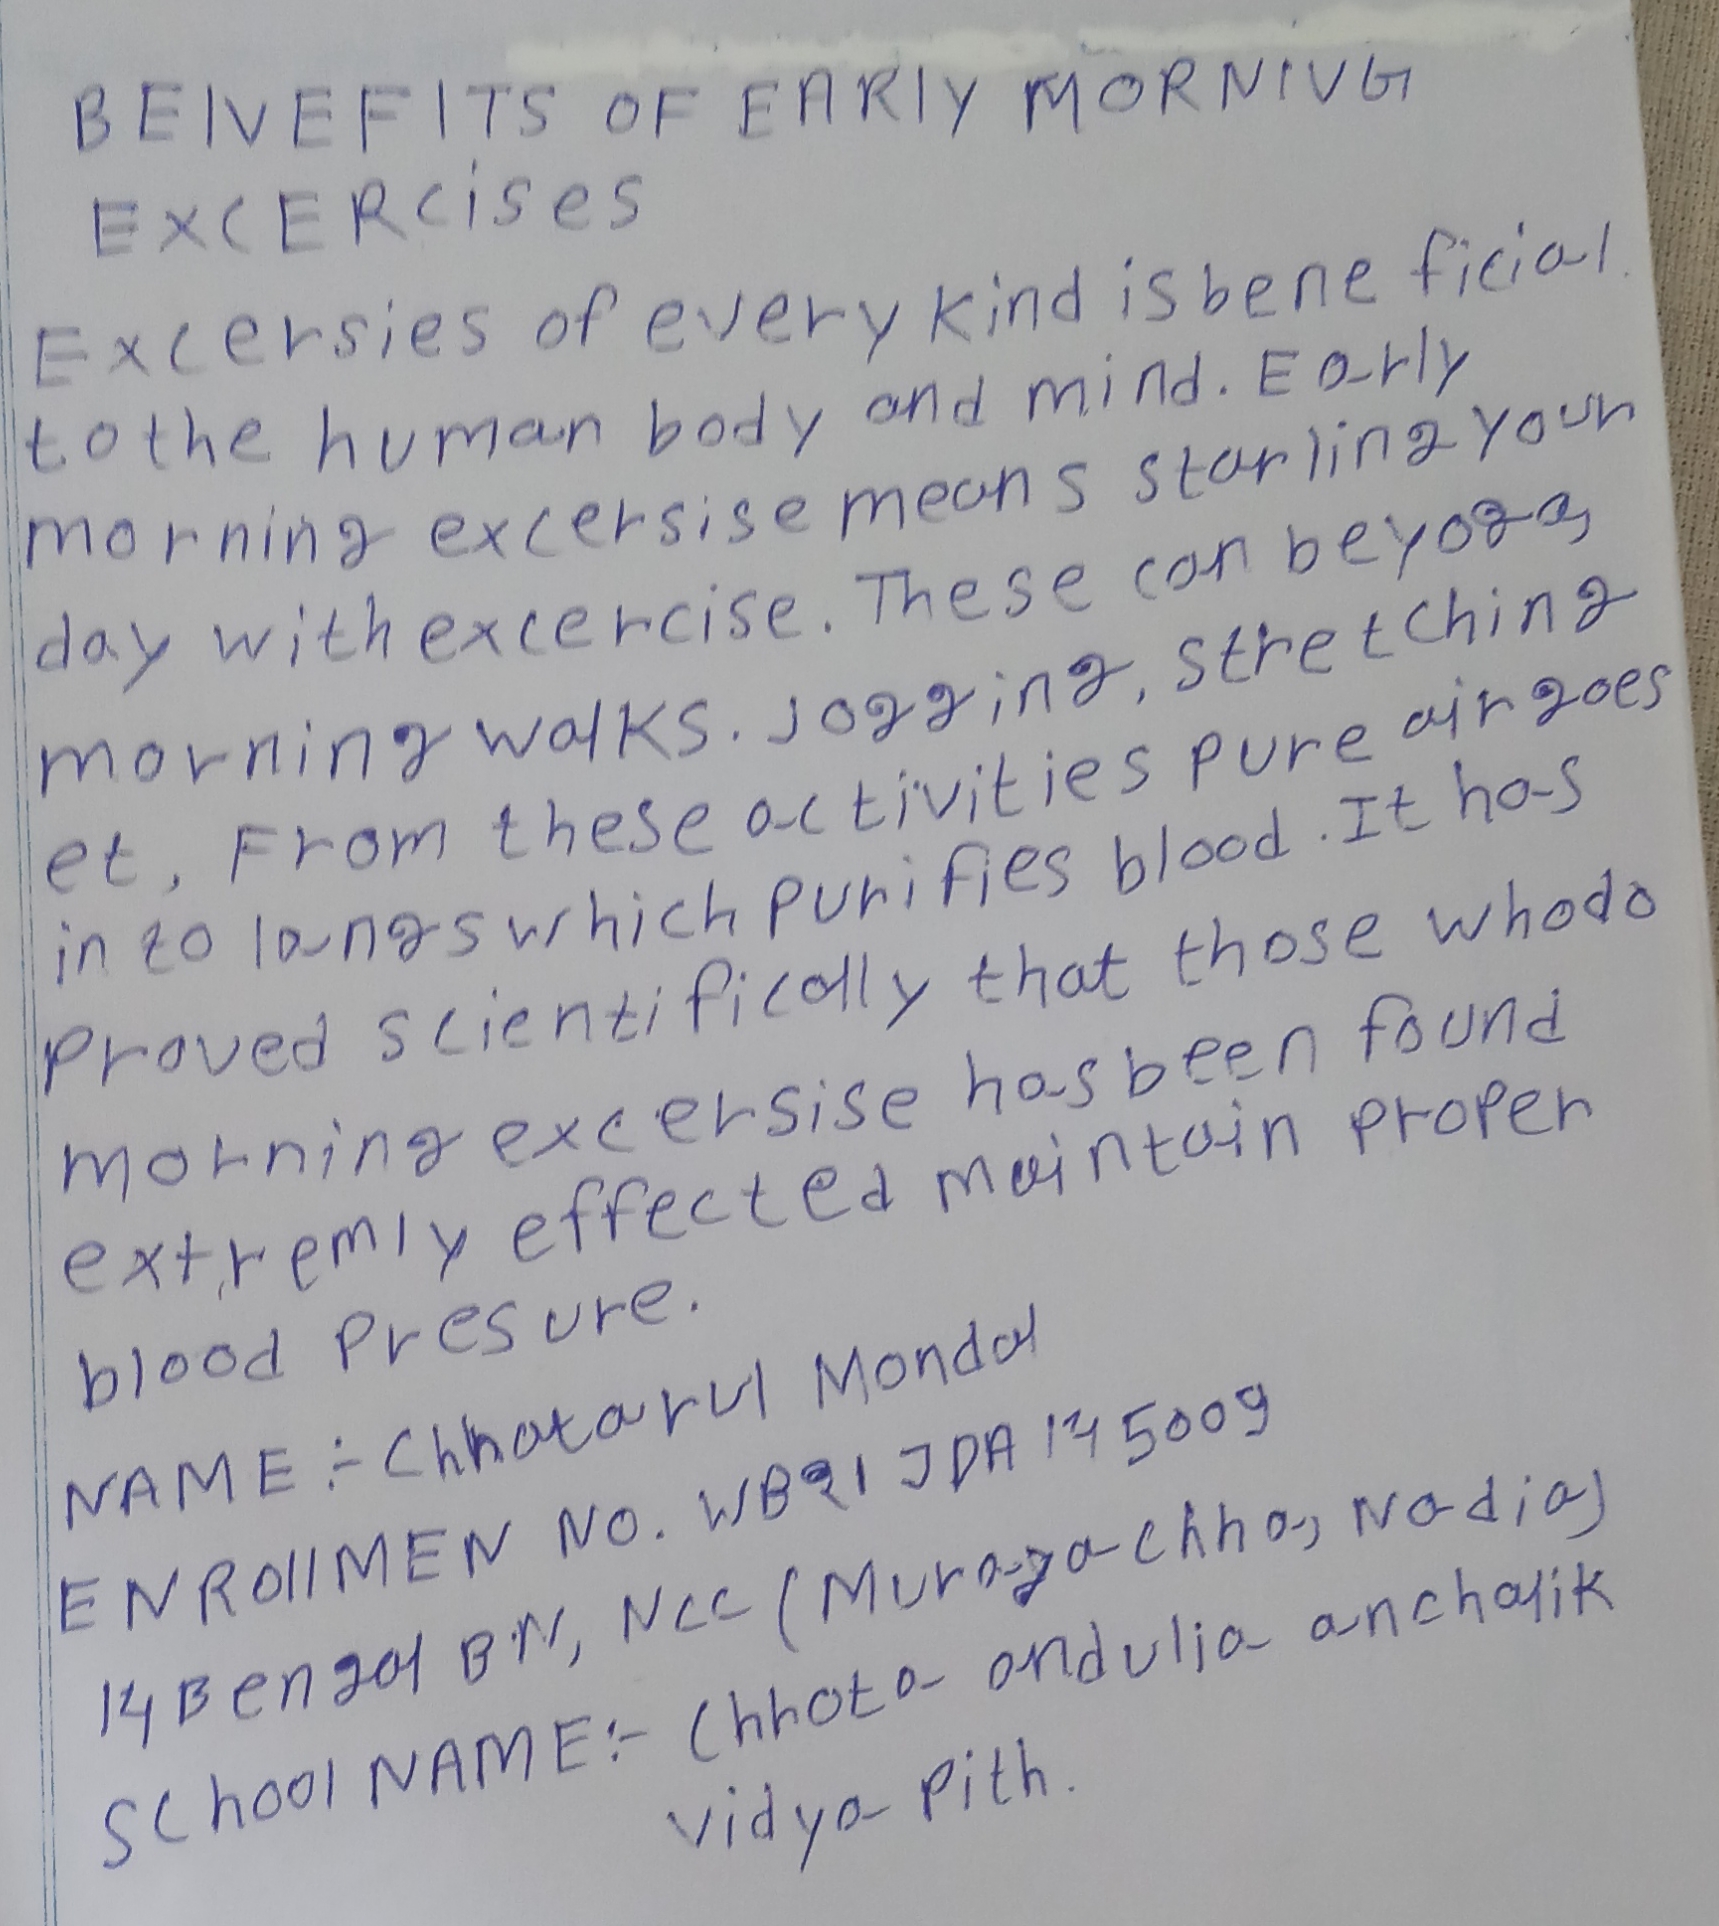 BENEFITS OF EARlY MORNING
EXCERcises
Excersies of every kind is bene ficial.
to the human body and mind. Early
morning excersise means starling your
day with excercise. These can be yoga,
morning walks. Jogging, stretching
et, From these activities pure air goes
in to langs which purifies blood. It has
proved scientifically that those who do
morning excersise has been found
extremly effected maintain proper
blood Presure.
NAME :- Chhatarul Mondal
ENROllMEN NO. WB21 JDA 145009
14 Bengal BN, NCC (Muragachha, Nadia)
SChool NAME:- Chhota andulia anchalik
vidya Pith.